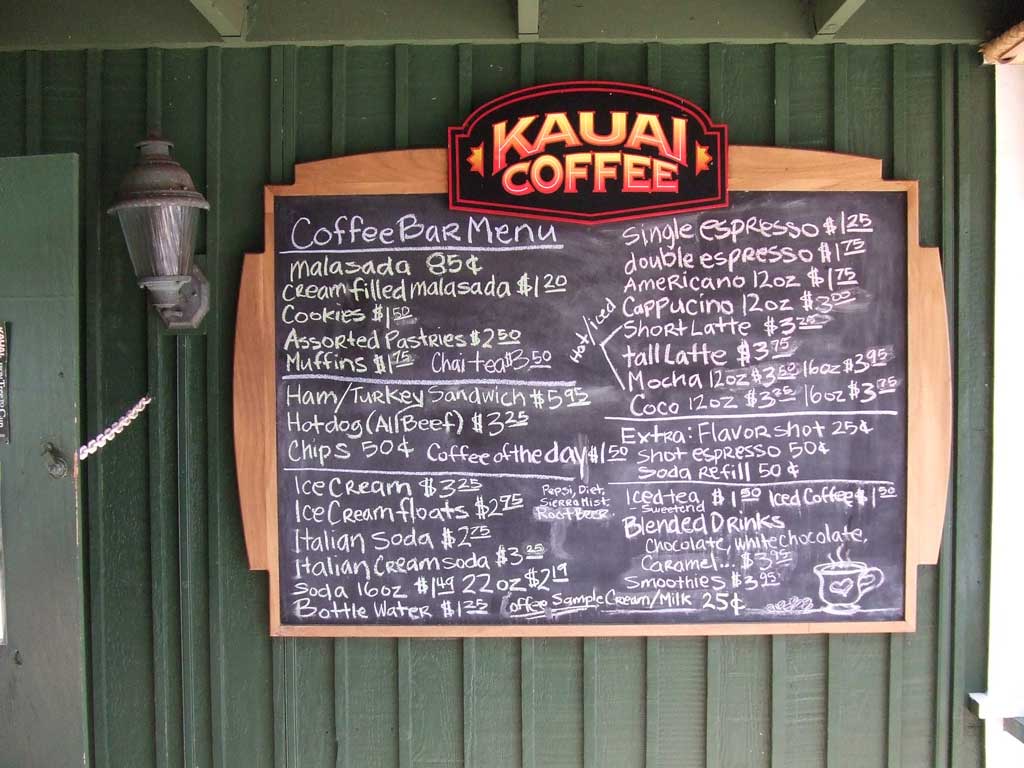 KAUAI
COFFEE
Coffee Bar Menu
malasada 85¢
cream filled malasada $1.20
Cookies $1.50
Assorted Pastries $2.50
Muffins $1.75 Chai tea $3.50
Ham/Turkey Sandwich $5.95
Hotdog (All Beef) $3.25
Chips 50¢ Coffee of the day $1.50
Ice Cream $3.25
Ice Cream floats $2.75
Pepsi, Diet,
Sierra Mist,
Root Beer
Italian Soda $2.75
Italian Cream soda $3.25
Soda 16oz $1.49 22oz $2.19
Bottle Water $1.25
Single espresso $1.25
double espresso $1.75
Americano 12oz $1.75
Hot/iced
Cappucino 12oz $3.00
Short Latte $3.25
tall Latte $3.75
Mocha 12oz $3.50 16oz $3.95
Coco 12oz 16oz $3.75
Extra: Flavor shot 25¢
shot espresso 50¢
Soda Refill 50¢
Iced tea, $1.50 Iced Coffee $1.50
Sweetend
Blended Drinks
Chocolate, white chocolate,
Caramel... $3.95
Smoothies $3.95
Coffee Sample Cream/Milk 25¢